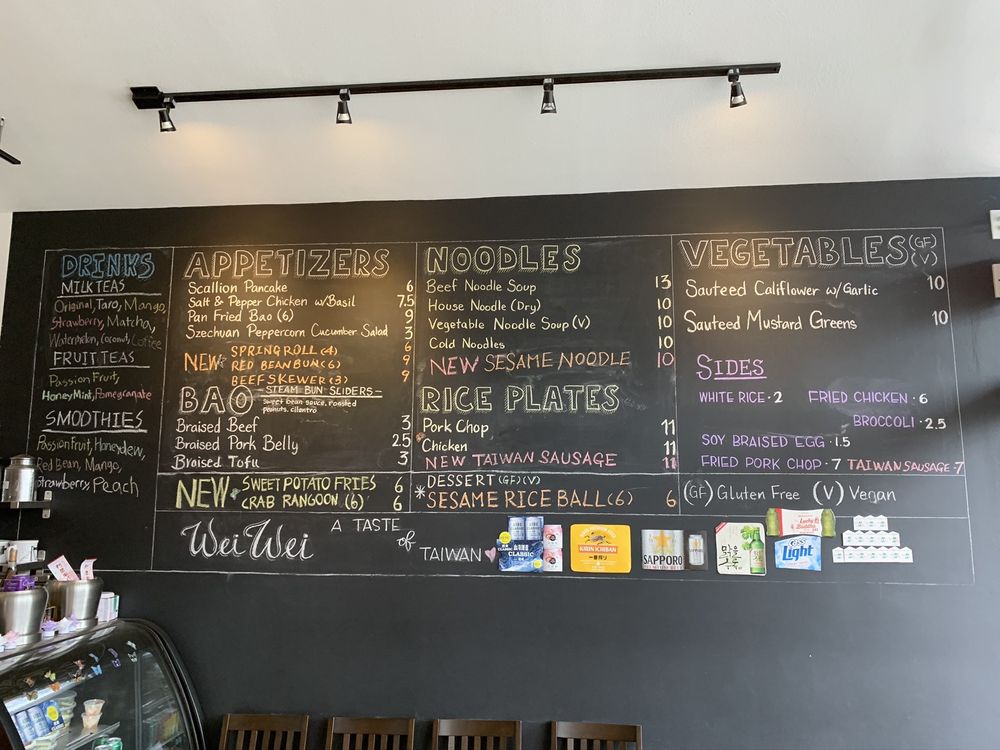 DRINKS
MILK TEAS
Original, Taro, Mango,
Strawberry, Matcha,
Watermelon, Coconut, Coffee
FRUIT TEAS
Passion Fruit,
Honey Mint, Pomegranate
SMOOTHIES
Passion Fruit, Honeydew,
Red Bean, Mango,
Strawberry, Peach
APPETIZERS
Scallion Pancake 6
Salt & Pepper Chicken w/Basil 7.5
Pan Fried Bao (6) 9
Szechuan Peppercorn Cucumber Salad 3
NEW SPRING ROLL (4) 6
RED BEAN BUN (6) 9
BEEF SKEWER (3) 9
BAO -STEAM BUN SLIDERS-
sweet bean sauce, roasted
peanuts, cilantro
Braised Beef 3
Braised Pork Belly 2.5
Braised Tofu 3
NEW SWEET POTATO FRIES 6
CRAB RANGOON (6) 6
NOODLES
Beef Noodle Soup 13
House Noodle (Dry) 10
Vegetable Noodle Soup (V) 10
Cold Noodles 10
NEW SESAME NOODLE 10
RICE PLATES
Pork Chop 11
Chicken 11
NEW TAIWAN SAUSAGE 11
DESSERT (GF)(V)
* SESAME RICE BALL (6) 6
VEGETABLES (GF) (V)
Sauteed Califlower w/Garlic 10
Sauteed Mustard Greens 10
SIDES
WHITE RICE · 2 FRIED CHICKEN · 6
BROCCOLI · 2.5
SOY BRAISED EGG · 1.5
FRIED PORK CHOP · 7 TAIWAN SAUSAGE · 7
(GF) Gluten Free (V) Vegan
Wei Wei A TASTE
of
TAIWAN
CLASSIC
KIRIN ICHIBAN
SAPPORO
PREMIUM BEER
Lucky
Buddha
Light